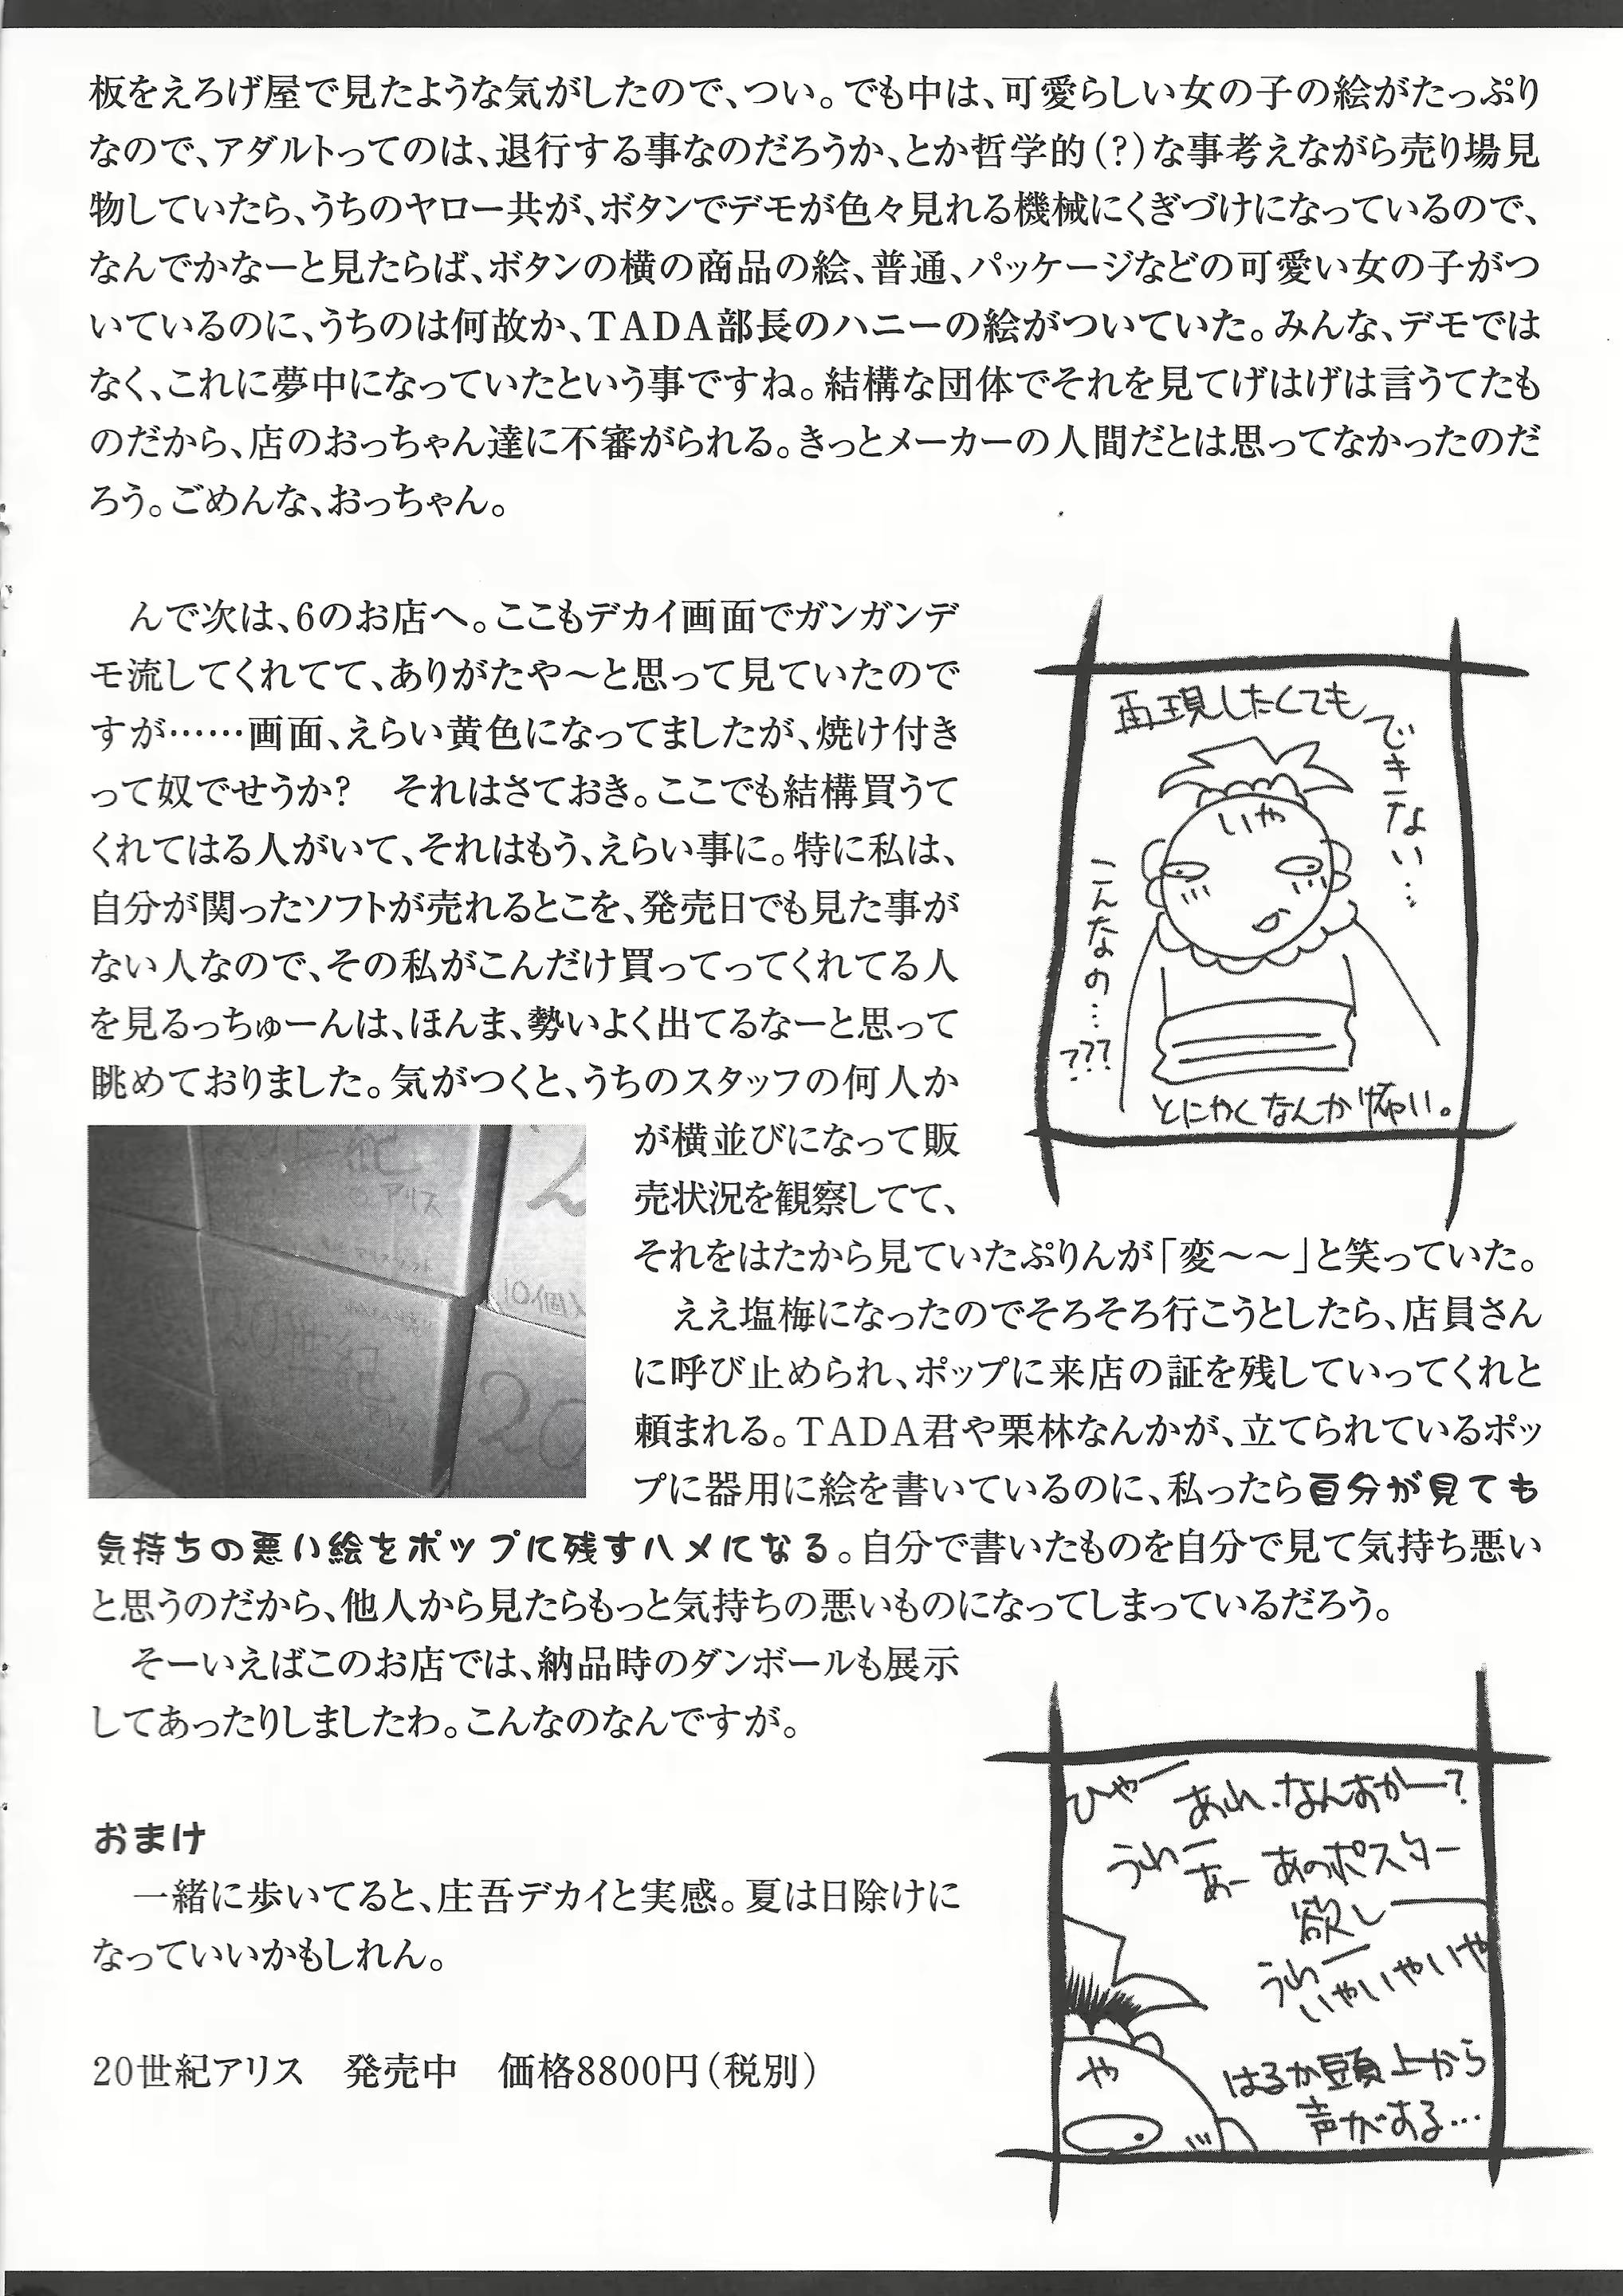 板をえろげ屋で見たような気がしたので、つい。でも中は、可愛らしい女の子の絵がたっぷり
なので、アダルトってのは、退行する事なのだろうか、とか哲学的(?)な事考えながら売り場見
物していたら、うちのヤロー共が、ボタンでデモが色々見れる機械にくぎづけになっているので、
なんでかなーと見たらば、ボタンの横の商品の絵、普通、パッケージなどの可愛い女の子がつ
いているのに、うちのは何故か、TADA部長のハニーの絵がついていた。みんな、デモでは
なく、これに夢中になっていたという事ですね。結構な団体でそれを見てげはげは言うてたも
のだから、店のおっちゃん達に不審がられる。きっとメーカーの人間だとは思ってなかったのだ
ろう。ごめんな、おっちゃん。
んで次は、6のお店へ。ここもデカイ画面でガンガンデ
モ流してくれてて、ありがたや〜と思って見ていたので
すが……画面、えらい黄色になってましたが、焼け付き
って奴でせうか?　それはさておき。ここでも結構買うて
くれてはる人がいて、それはもう、えらい事に。特に私は、
自分が関ったソフトが売れるとこを、発売日でも見た事が
ない人なので、その私がこんだけ買ってってくれてる人
を見るっちゅーんは、ほんま、勢いよく出てるなーと思って
眺めておりました。気がつくと、うちのスタッフの何人か
が横並びになって販
売状況を観察してて、
それをはたから見ていたぷりんが「変〜〜」と笑っていた。
ええ塩梅になったのでそろそろ行こうとしたら、店員さん
に呼び止められ、ポップに来店の証を残していってくれと
頼まれる。TADA君や栗林なんかが、立てられているポッ
プに器用に絵を書いているのに、私ったら自分が見ても
気持ちの悪い絵をポップに残すハメになる。自分で書いたものを自分で見て気持ち悪い
と思うのだから、他人から見たらもっと気持ちの悪いものになってしまっているだろう。
そーいえばこのお店では、納品時のダンボールも展示
してあったりしましたわ。こんなのなんですが。
おまけ
一緒に歩いてると、庄吾デカイと実感。夏は日除けに
なっていいかもしれん。
20世紀アリス　発売中　価格8800円(税別)
再現したくても
できない…
いや
こんなの…
???
とにかくなんか怖い。
20世紀
アリス
10個入
20
ひゃー
あれ、なんすかー?
うわー
あー
あのポスター
欲しー
うわー
いやいやいや
や
はるか頭上から
声がする…